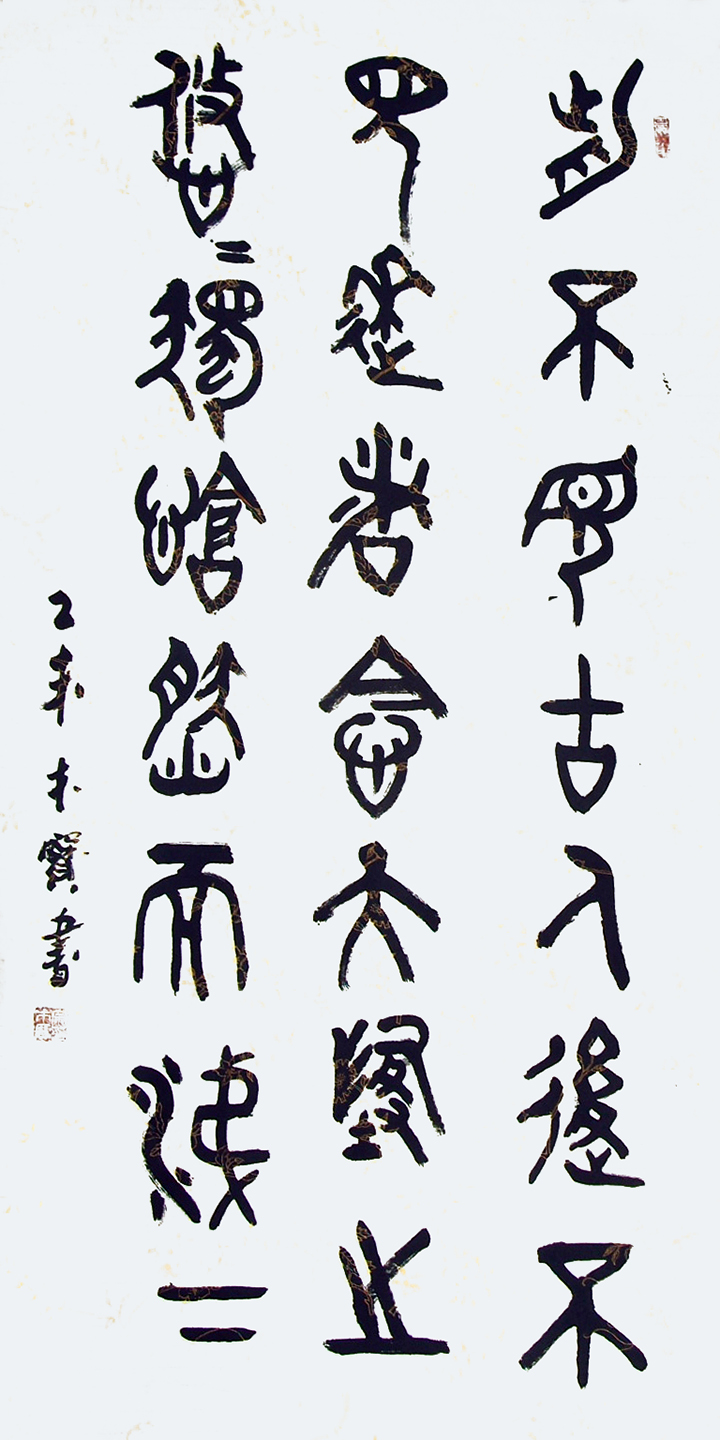 前不見古人後不
見來者念天地之
悠〻獨愴然而涕下
乙 寶書